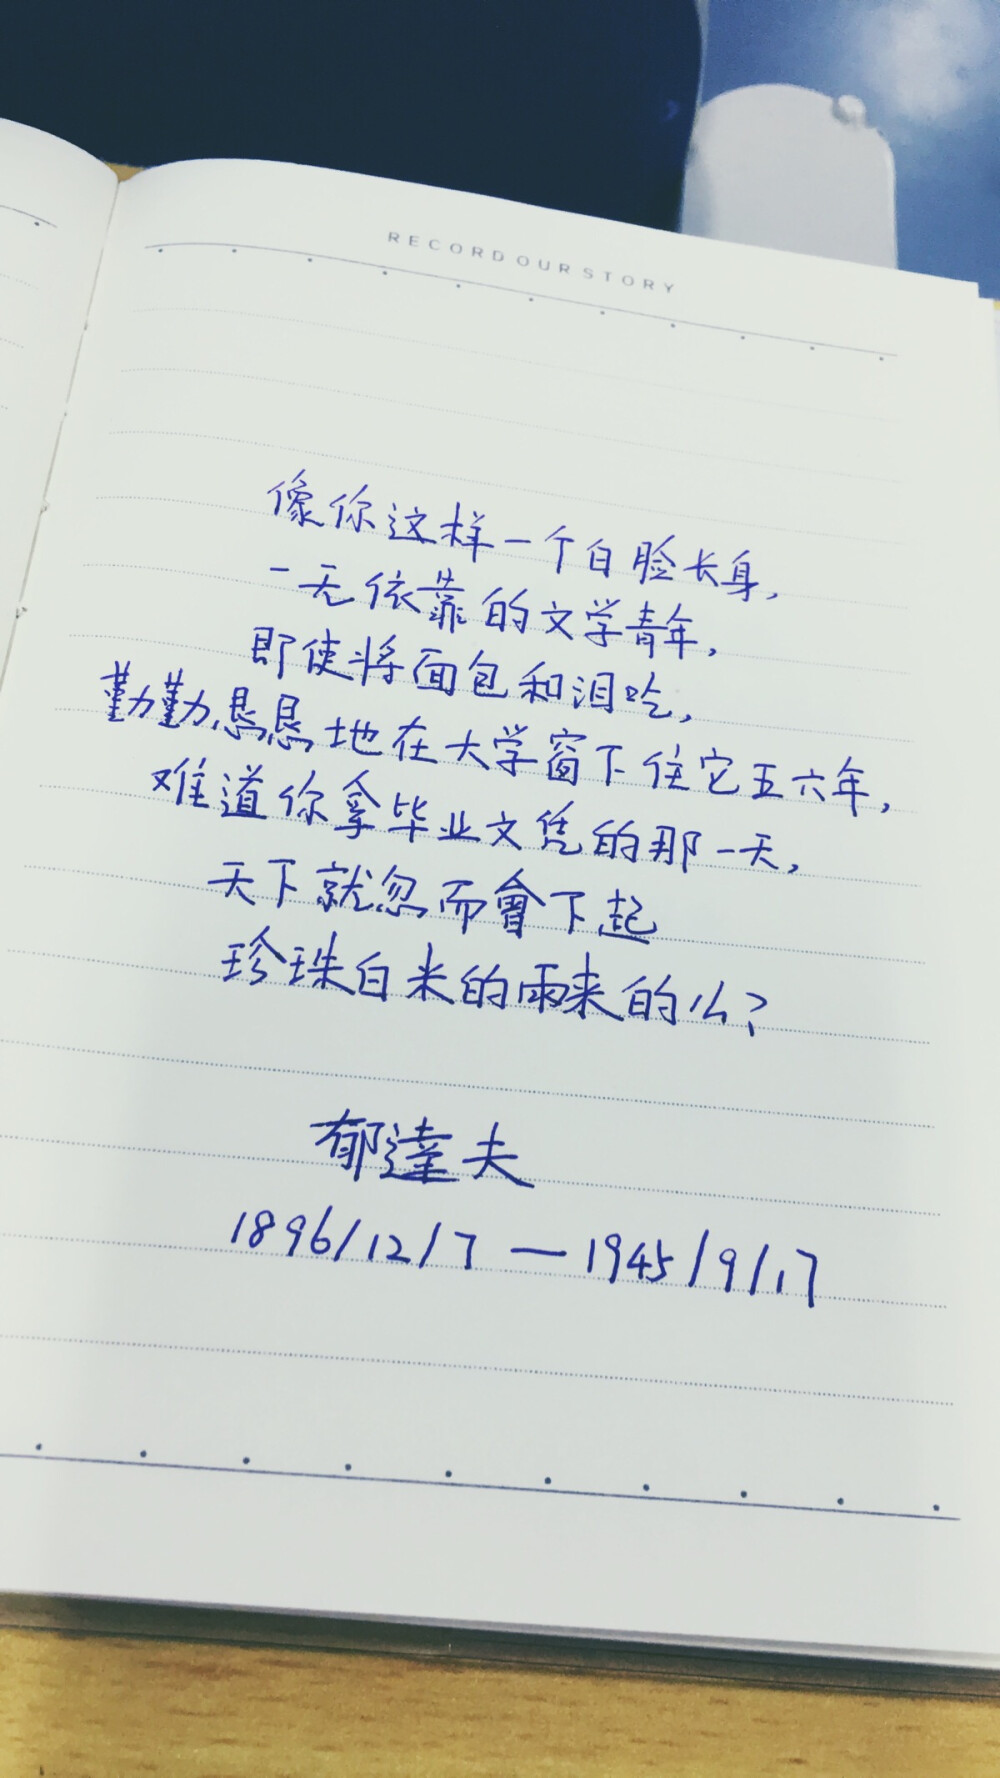 RECORD OUR STORY
像你这样一个白脸长身,
一无依靠的文学青年,
即使将面包和泪吃,
勤勤恳恳地在大学窗下住它五六年,
难道你拿毕业文凭的那一天,
天下就忽而會下起
珍珠白米的雨来的么?
郁達夫
1896/12/7 — 1945/9/17